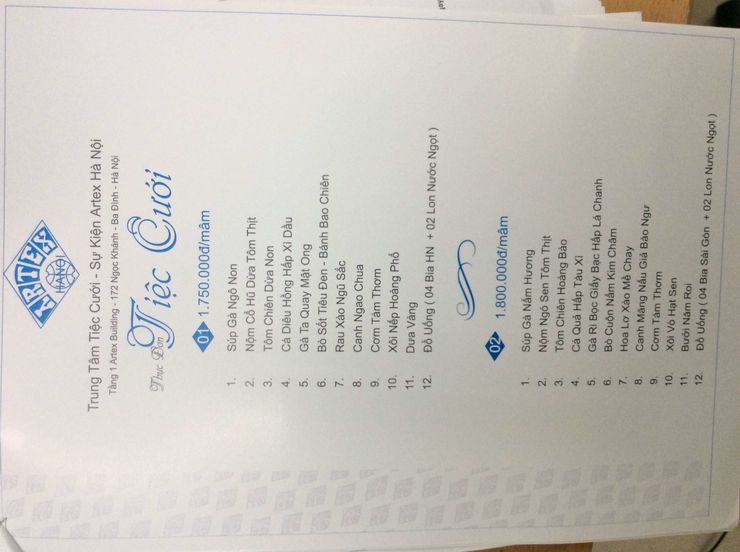 ARTEX
HANOI
Trung Tâm Tiệc Cưới - Sự Kiện Artex Hà Nội
Tầng 1 Artex Building - 172 Ngọc Khánh - Ba Đình - Hà Nội
Thực Đơn
Tiệc Cưới
01 1.750.000đ/mâm
1. Súp Gà Ngô Non
2. Nộm Cổ Hũ Dừa Tôm Thịt
3. Tôm Chiên Dừa Non
4. Cá Diêu Hồng Hấp Xì Dầu
5. Gà Ta Quay Mật Ong
6. Bò Sốt Tiêu Đen - Bánh Bao Chiên
7. Rau Xào Ngũ Sắc
8. Canh Ngao Chua
9. Cơm Tám Thơm
10. Xôi Nếp Hoàng Phố
11. Dưa Vàng
12. Đồ Uống ( 04 Bia HN + 02 Lon Nước Ngọt )
02 1.800.000đ/mâm
1. Súp Gà Nấm Hương
2. Nộm Ngó Sen Tôm Thịt
3. Tôm Chiên Hoàng Bào
4. Cá Quả Hấp Tàu Xì
5. Gà Ri Bọc Giấy Bạc Hấp Lá Chanh
6. Bò Cuộn Nấm Kim Châm
7. Hoa Lơ Xào Mề Chay
8. Canh Măng Nấu Giả Bào Ngư
9. Cơm Tám Thơm
10. Xôi Vò Hạt Sen
11. Bưởi Năm Roi
12. Đồ Uống ( 04 Bia Sài Gòn + 02 Lon Nước Ngọt )